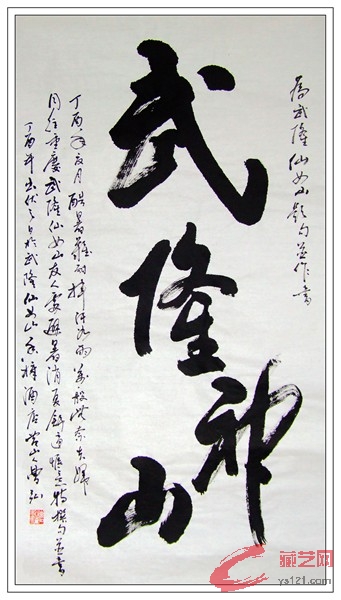 为武隆仙女山题句并作书
武隆神山
丁酉年六月酷暑难耐挥汗如雨
同往重庆武隆仙女山友人处避暑消夏舒适惬意特撰句并书
丁酉年出伏之日于武隆仙女山
酒店
藏艺网
ys121.com